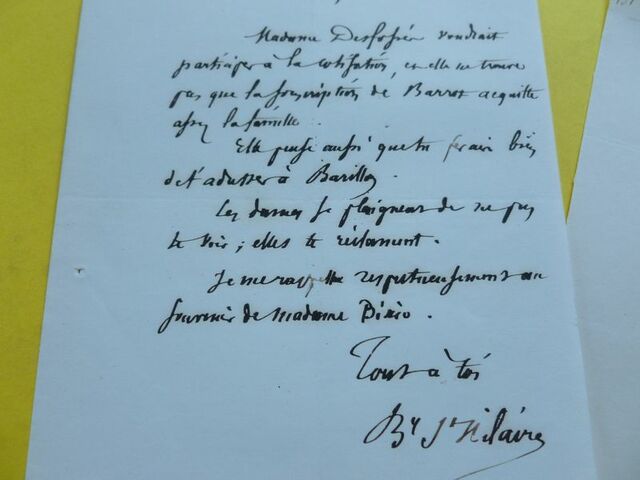 Madame Desfossés voudrait
participer à la cotisation, et elle ne trouve
pas que la souscription de Barrot acquitte
assez la famille.
Elle pense aussi que tu ferais bien
de t'adresser à
Ces dames se plaignent de ne pas
te voir ; elles te réclament.
Je me rappelle respectueusement au
souvenir de Madame Bixio.
Tout à toi
By St Hilaire